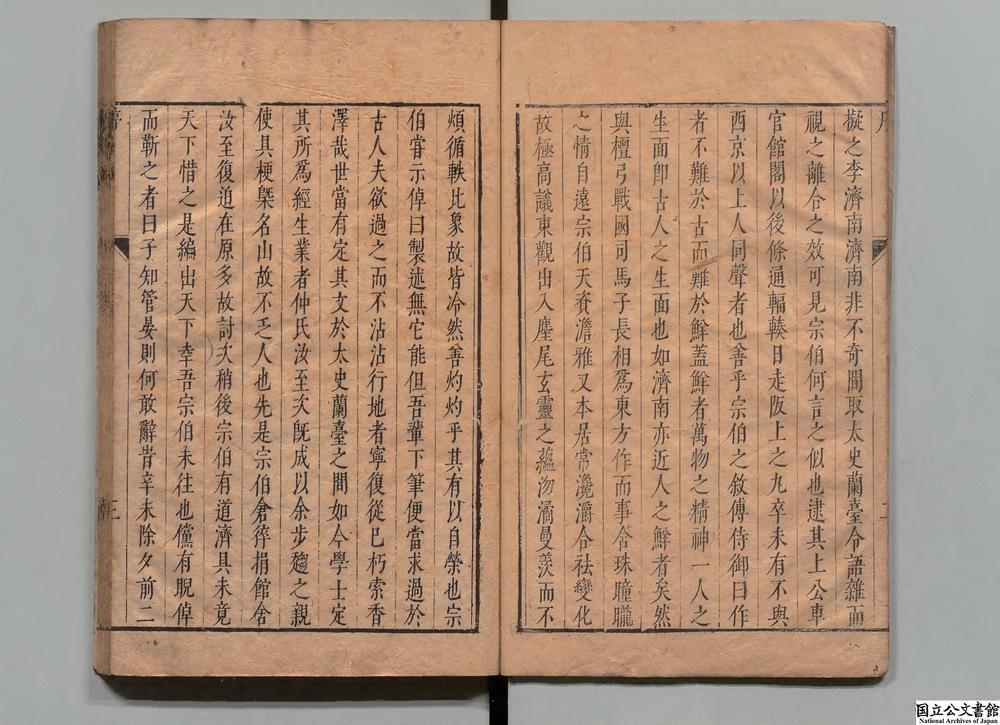 擬之李濟南濟南非不奇間取太史蘭臺令語雜而
視之離合之效可見宗伯何言之似也逮其上公車
官館閣以後條通輻輳日走阪上之丸卒未有不與
西京以上人同聲者也善乎宗伯之敘傅侍御曰作
者不難於古而難於鮮蓋鮮者萬物之精神一人之
生面卽古人之生面也如濟南亦近人之鮮者矣然
與檀弓戰國司馬子長相爲東方作而事含珠瞳矓
之情自遠宗伯天資澹雅又本居常瀺灂合祛變化
故極高議東觀出入麈尾玄靈之蘊沕潏曼羨而不
煩循軼比象故皆冷然善灼灼乎其有以自榮也宗
伯嘗示倬曰製述無它能但吾輩下筆便當求過於
古人夫欲過之而不沾沾行地者寧復從已朽索香
澤哉世當有定其文於太史蘭臺之間如今學士定
其所爲經生業者仲氏汝至次旣成以余步趨之親
使具梗槩名山故不乏人也先是宗伯倉猝捐館舍
汝至復迫在原多故討次稍後宗伯有道濟具未竟
天下惜之是編出天下幸吾宗伯未往也儻有睨倬
而靳之者曰子知管晏則何敢辭昔辛未除夕前二
国立公文書館
National Archives of Japan